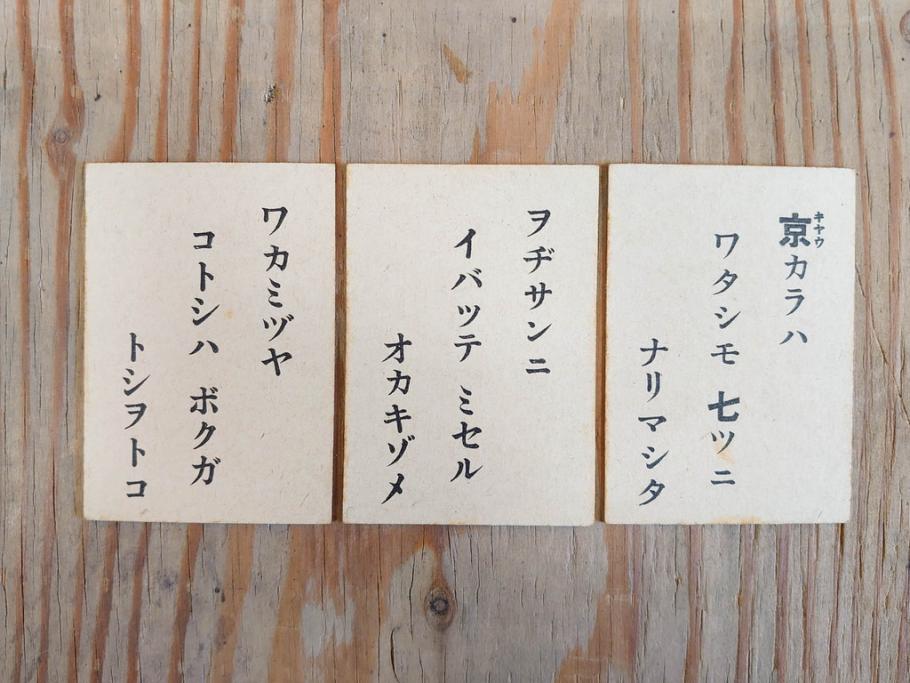 京カラハ
キヤウ
ワタシモ 七ツニ
ナリマシタ
ヲヂサンニ
イバッテ ミセル
オカキゾメ
ワカミヅヤ
コトシハ ボクガ
トシヲトコ